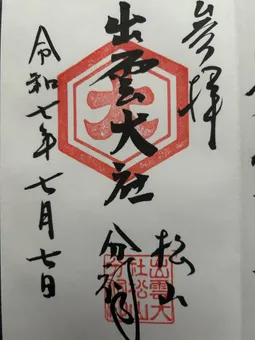 参拝
出雲大社
松山
分祠
令和七年七月七日
出雲大
社松山
分祠